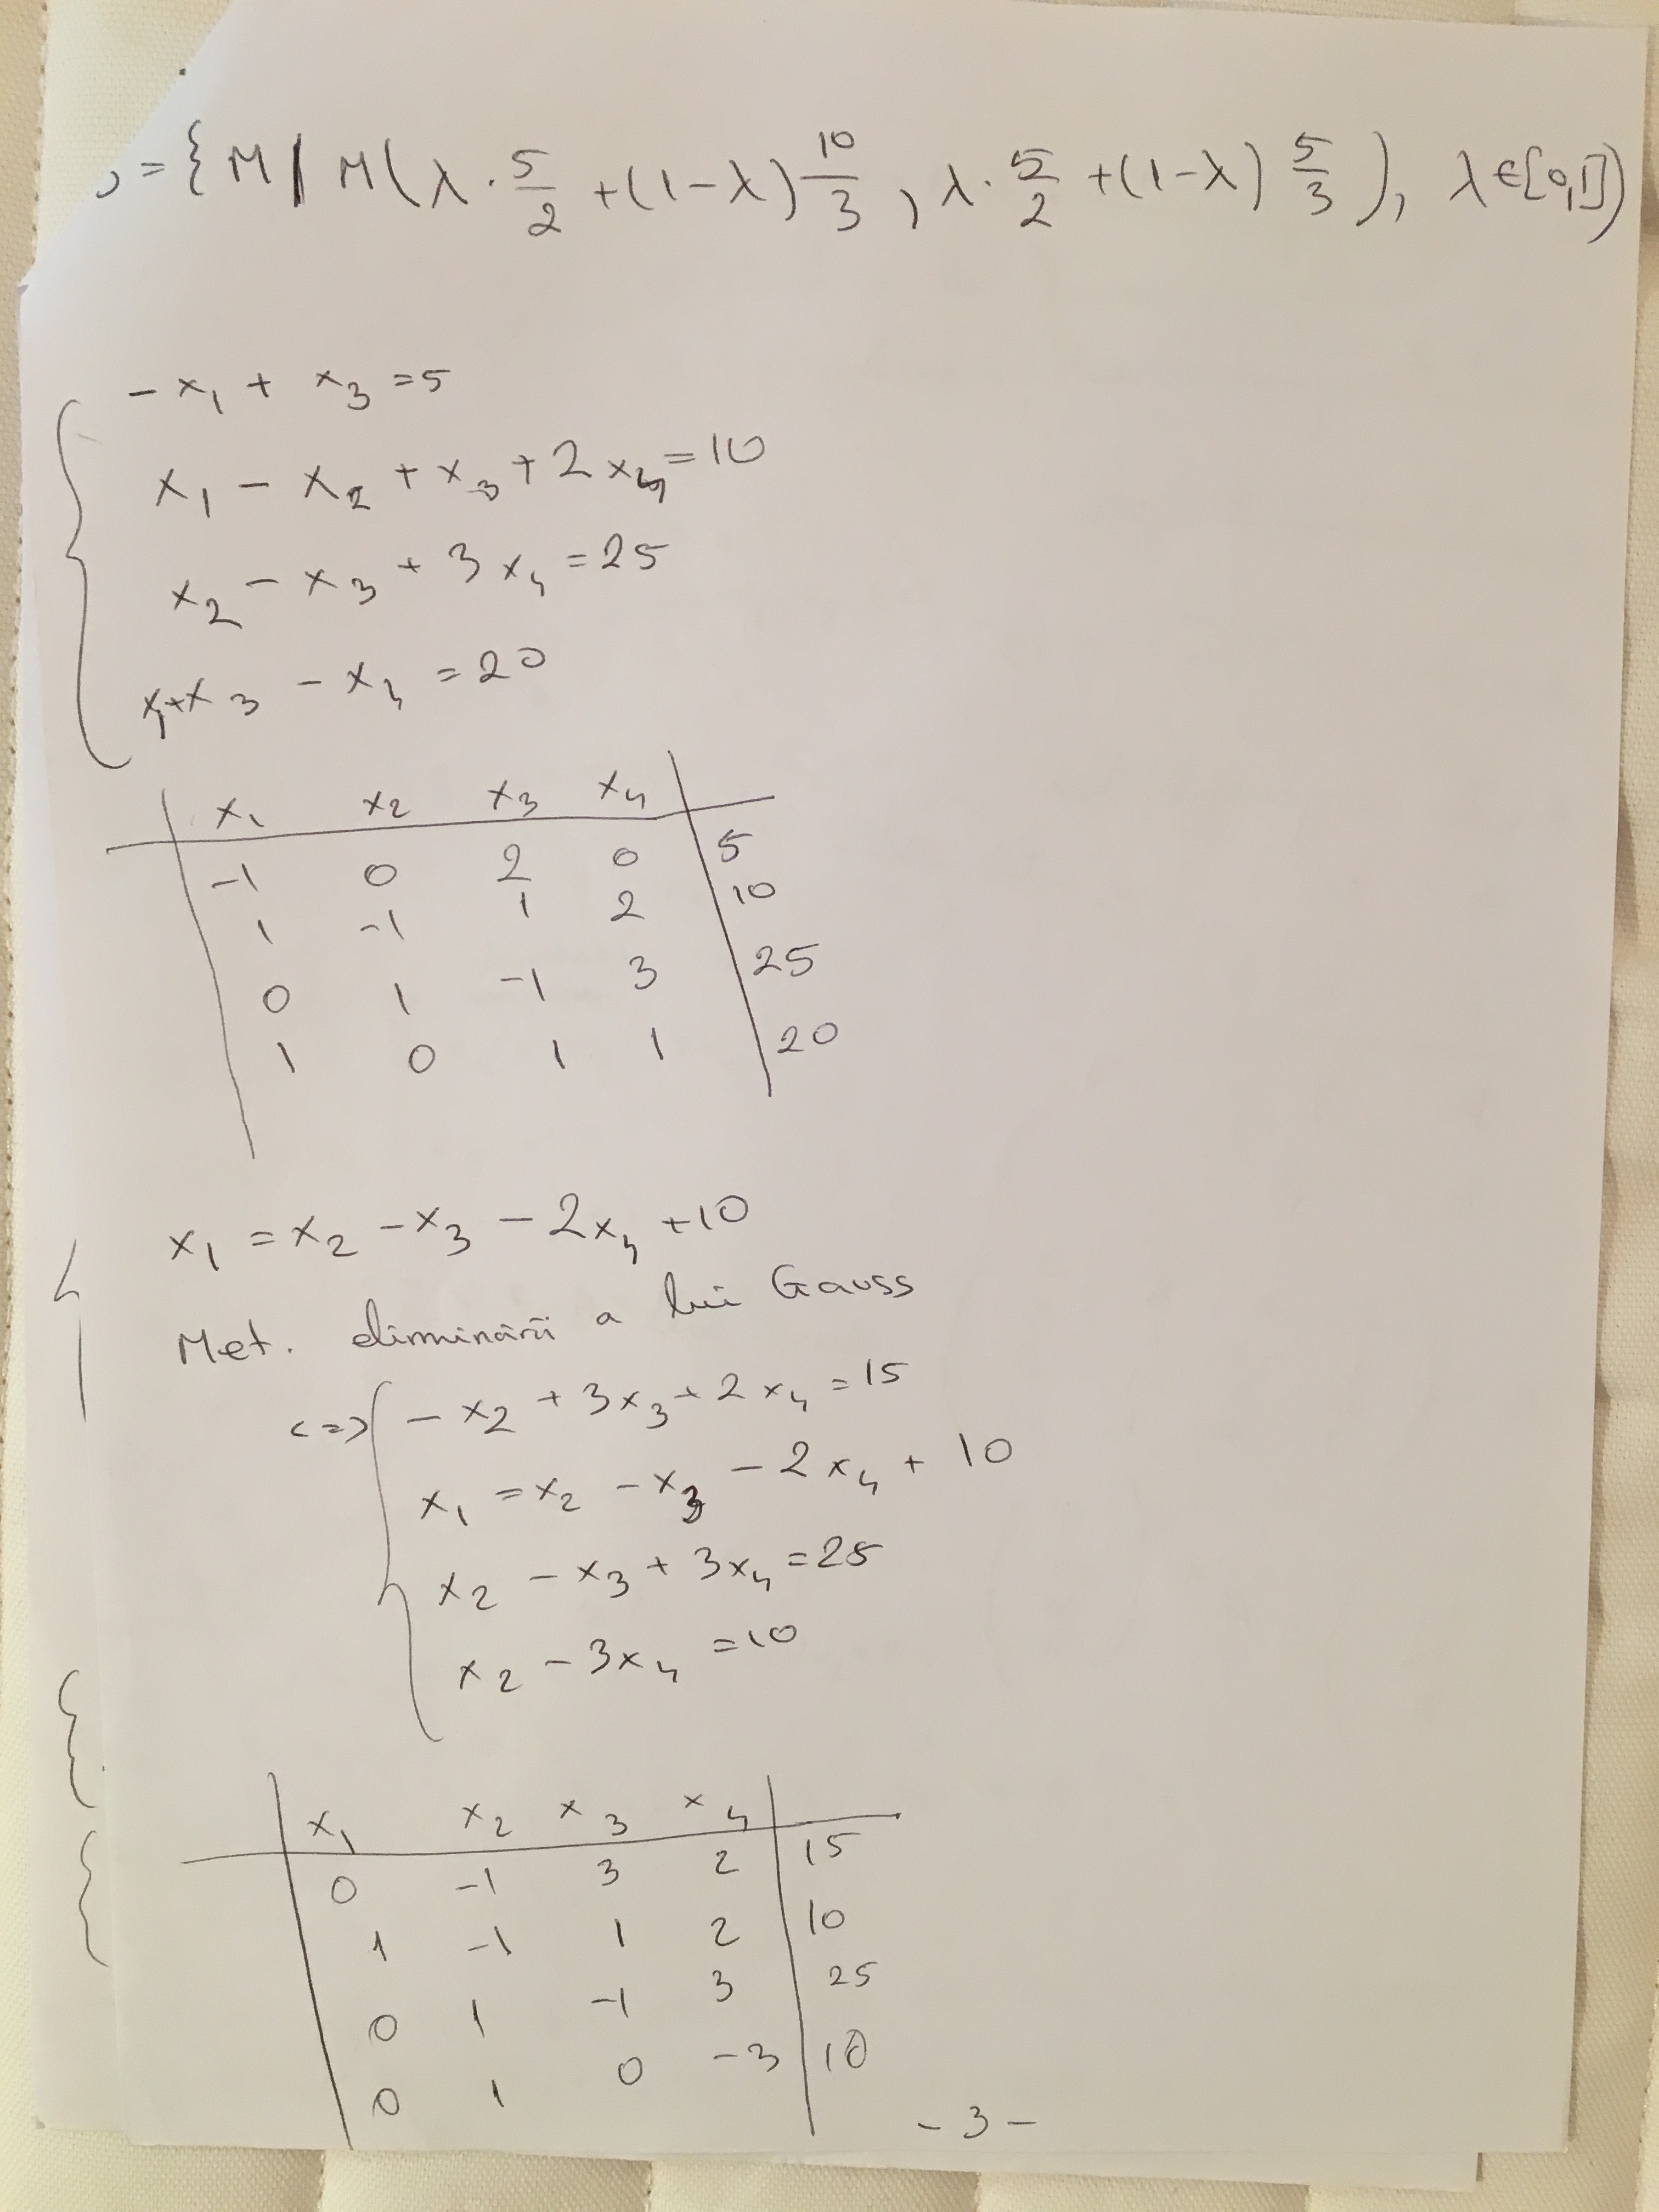 = { M | M(λ · 5/2 + (1-λ) 10/3 , λ · 5/2 + (1-λ) 5/3 ), λ ∈ [0,1] )
- x₁ + x₃ = 5
x₁ - x₂ + x₃ + 2 x₄ = 10
x₂ - x₃ + 3 x₄ = 25
x₁ + x₃ - x₄ = 20
x₁ x₂ x₃ x₄
-1 0 2 0 5
1 -1 1 2 10
0 1 -1 3 25
1 0 1 1 20
x₁ = x₂ - x₃ - 2x₄ + 10
Met. eliminării a lui Gauss
<=> - x₂ + 3x₃ + 2 x₄ = 15
x₁ = x₂ - x₃ - 2 x₄ + 10
x₂ - x₃ + 3x₄ = 25
x₂ - 3x₄ = 10
x₁ x₂ x₃ x₄
0 -1 3 2 15
1 -1 1 2 10
0 1 -1 3 25
0 1 0 -3 10
- 3 -